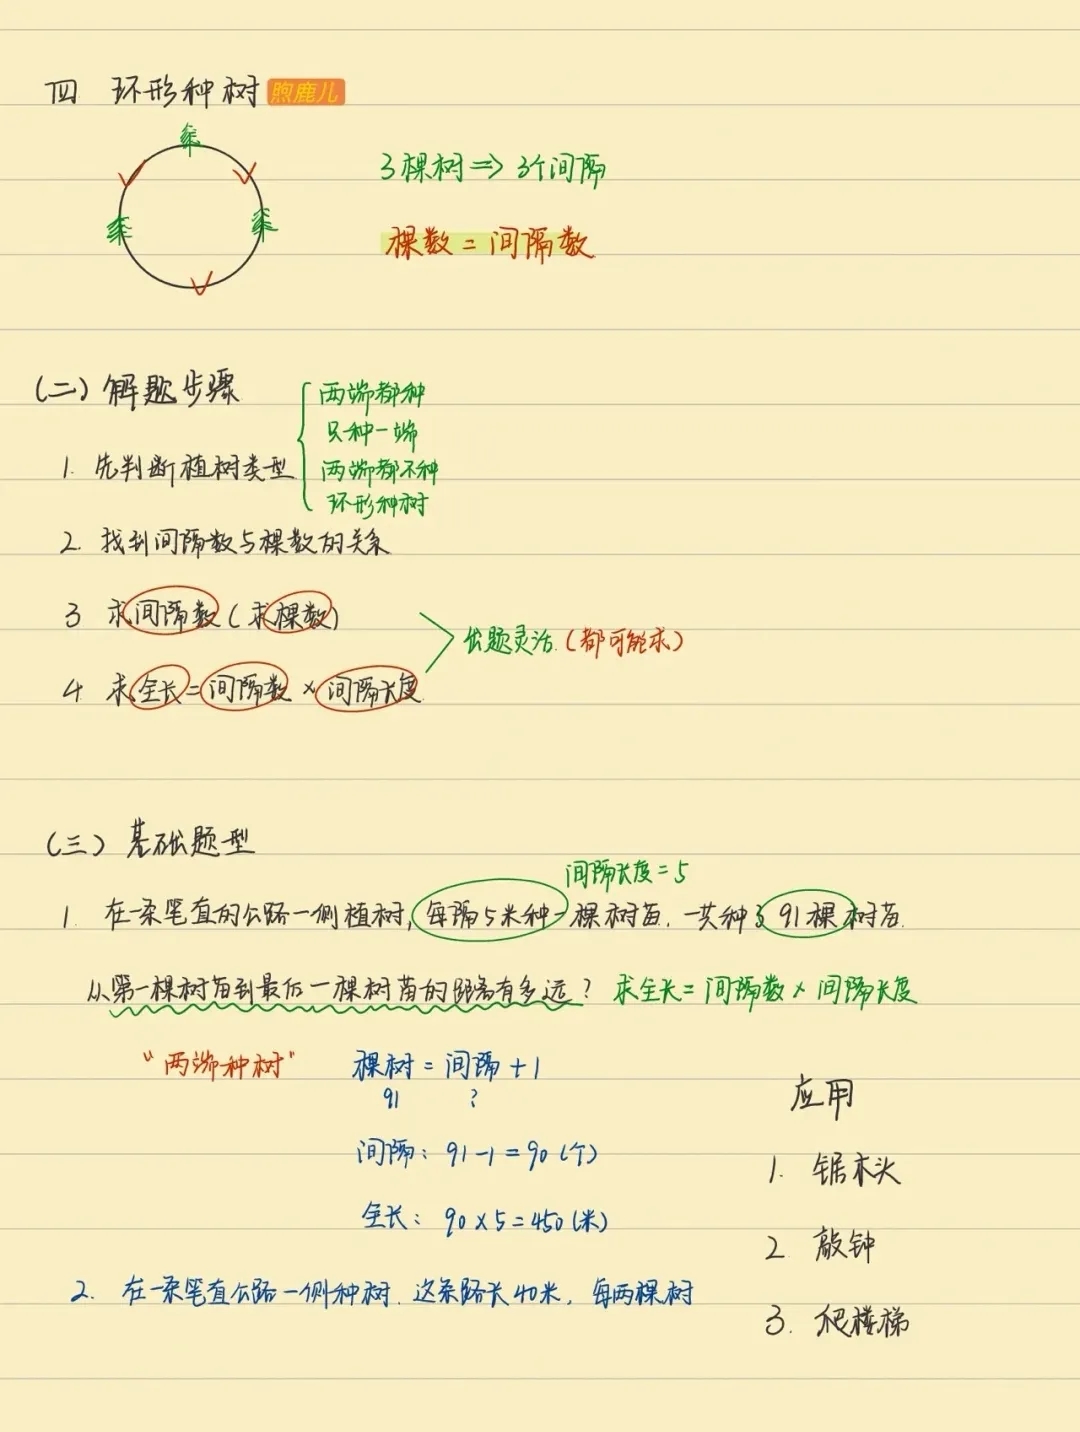 四 环形种树 煦鹿儿
3棵树⇒3个间隔
棵数=间隔数
(二)解题步骤
两端都种
只种一端
1. 先判断植树类型
两端都不种
环形种树
2. 找到间隔数与棵数的关系
3 求间隔数(求棵数)
出题灵活.(都可能求)
4. 求全长=间隔数×间隔长度
(三)基础题型
间隔长度=5
1. 在一条笔直的公路一侧植树,每隔5米种一棵树苗.一共种了91棵树苗.
从第一棵树苗到最后一棵树苗的距离有多远? 求全长=间隔数×间隔长度
“两端种树” 棵树=间隔+1
91 ?
应用
间隔: 91-1=90(个)
1. 锯木头
全长: 90×5=450(米)
2 敲钟
2. 在一条笔直公路一侧种树.这条路长40米,每两棵树
3. 爬楼梯